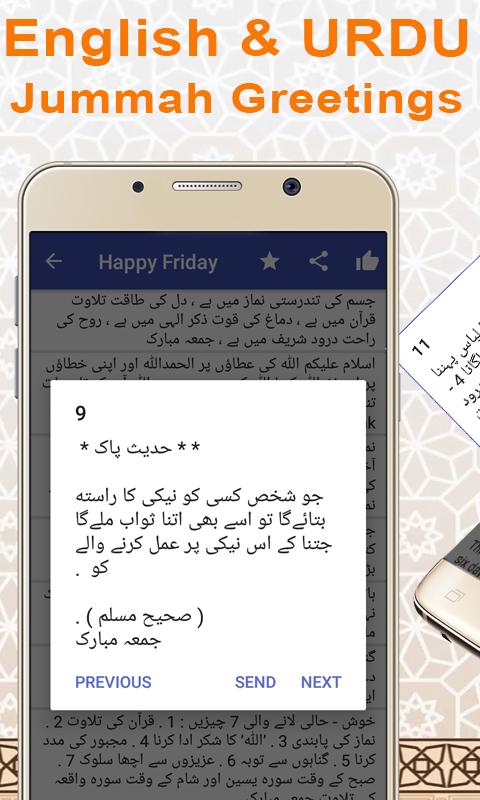 English & URDU
Jummah Greetings
Happy Friday
جسم کی تندرستی نماز میں ہے ، دل کی طاقت تلاوت
قرآن میں ہے ، دماغ کی قوت ذکر الہی میں ہے ، روح کی
راحت درود شریف میں ہے ، جمعہ مبارک
اسلام علیکم اللہ کی عطاؤں پر الحمداللہ اور اپنی خطاؤں
9
* * حدیث پاک *
جو شخص کسی کو نیکی کا راسته
بتائےگا تو اسے بھی اتنا ثواب ملےگا
جتنا کے اس نیکی پر عمل کرنے والے
کو .
( صحیح مسلم ) .
جمعہ مبارک
PREVIOUS SEND NEXT
خوش - حالی لانے والی 7 چیزیں : 1 . قرآن کی تلاوت 2 .
نماز کی پابندی 3 . ’اللہ’ کا شکر ادا کرنا 4 . مجبور کی مدد
کرنا 5 . گناہوں سے توبہ 6 . عزیزوں سے اچھا سلوک 7 .
صبح کے وقت سوره یسین اور شام کے وقت سوره واقعہ
کی تلاوت جمعہ مبارک
11
لباس پہننا
4 -
درود
six da